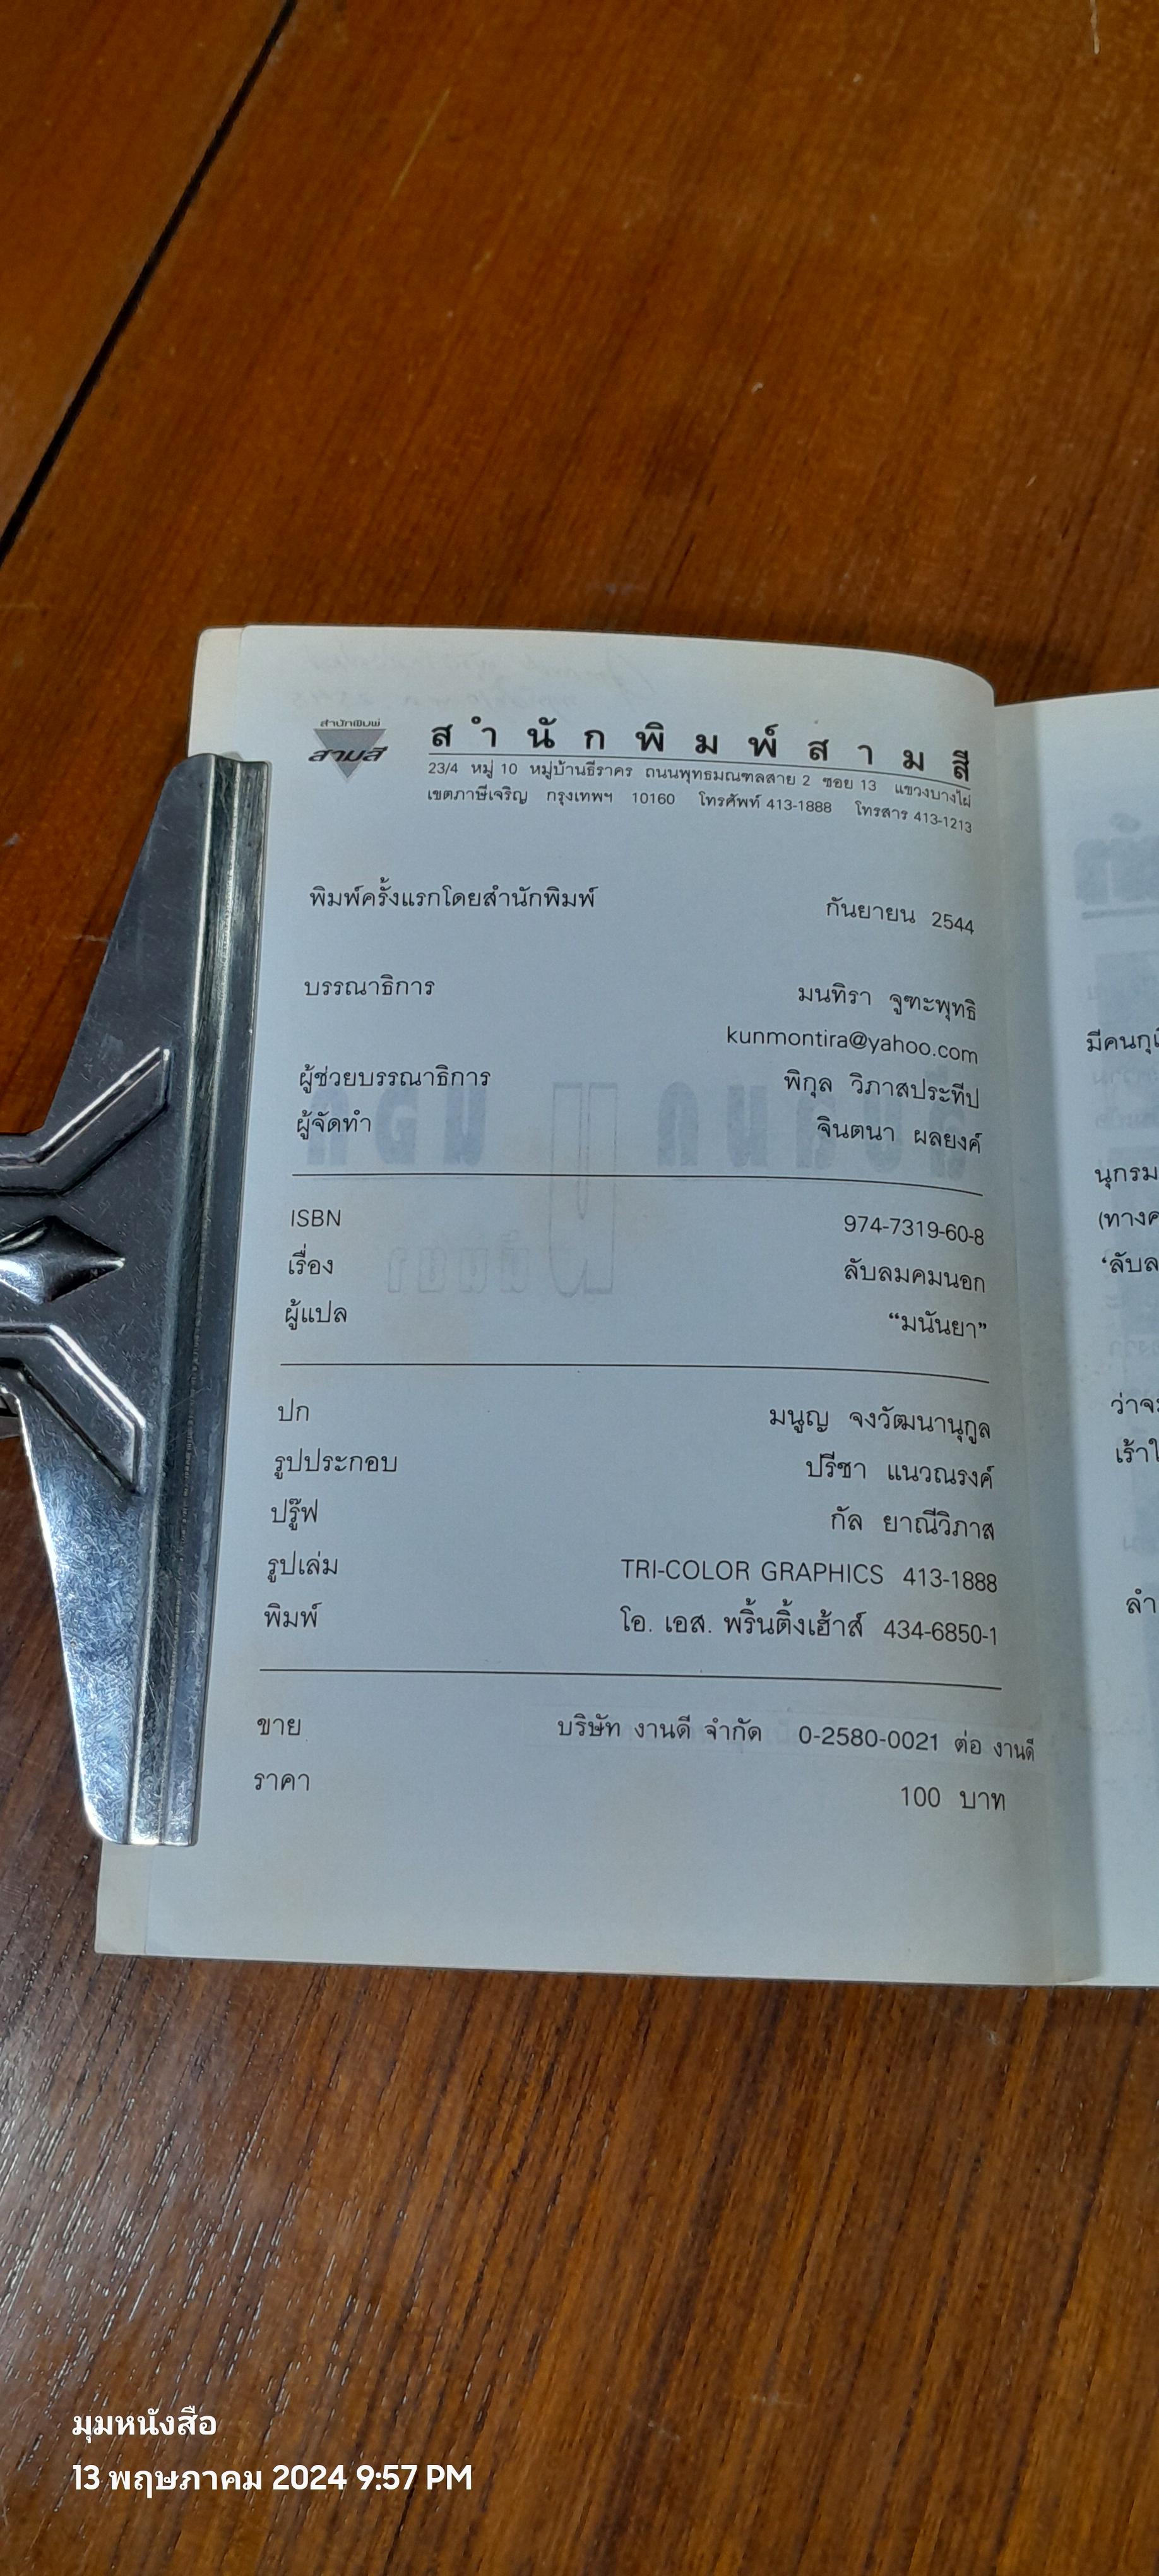 สำนักพิมพ์
สามสี
สำนักพิมพ์สามสี
23/4 หมู่ 10 หมู่บ้านธีราคร ถนนพุทธมณฑลสาย 2 ซอย 13 แขวงบางไผ่
เขตภาษีเจริญ กรุงเทพฯ 10160 โทรศัพท์ 413-1888 โทรสาร 413-1213
พิมพ์ครั้งแรกโดยสำนักพิมพ์ กันยายน 2544
บรรณาธิการ มนทิรา จูฑะพุทธิ
kunmontira@yahoo.com
ผู้ช่วยบรรณาธิการ พิกุล วิภาสประทีป
ผู้จัดทำ จินตนา ผลยงค์
ISBN 974-7319-60-8
เรื่อง ลับลมคมนอก
ผู้แปล “มนันยา”
ปก มนูญ จงวัฒนานุกูล
รูปประกอบ ปรีชา แนวณรงค์
ปรู๊ฟ กัล ยาณีวิภาส
รูปเล่ม TRI-COLOR GRAPHICS 413-1888
พิมพ์ โอ. เอส. พริ้นติ้งเฮ้าส์ 434-6850-1
ขาย บริษัท งานดี จำกัด 0-2580-0021 ต่อ งานดี
ราคา 100 บาท
นุกรม
(ทาง
‘ลับล
ว่าจะ
เร้าใ
ลำ
มุมหนังสือ
13 พฤษภาคม 2024 9:57 PM